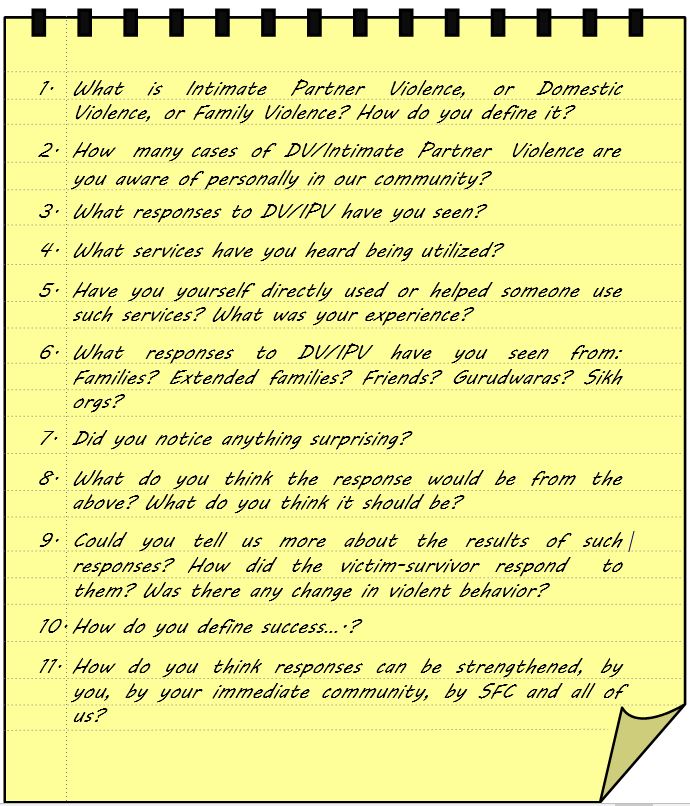 1. What is Intimate Partner Violence, or Domestic
Violence, or Family Violence? How do you define it?
2. How many cases of DV/Intimate Partner Violence are
you aware of personally in our community?
3. What responses to DV/IPV have you seen?
4. What services have you heard being utilized?
5. Have you yourself directly used or helped someone use
such services? What was your experience?
6. What responses to DV/IPV have you seen from:
Families? Extended families? Friends? Gurudwaras? Sikh
orgs?
7. Did you notice anything surprising?
8. What do you think the response would be from the
above? What do you think it should be?
9. Could you tell us more about the results of such
responses? How did the victim-survivor respond to
them? Was there any change in violent behavior?
10. How do you define success....?
11. How do you think responses can be strengthened, by
you, by your immediate community, by SFC and all of
us?